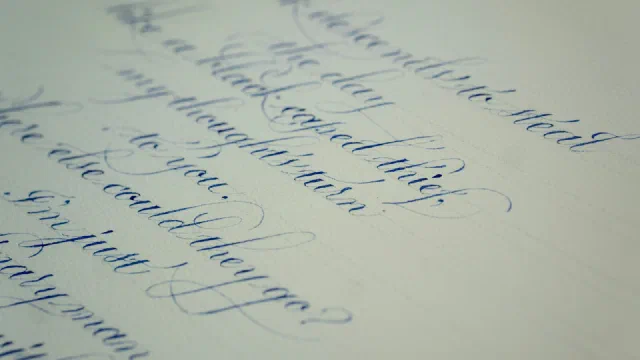 descends to steal
the day
like a black-caped thief,
my thoughts turn
to you.
where else could they go?
I'm just
man